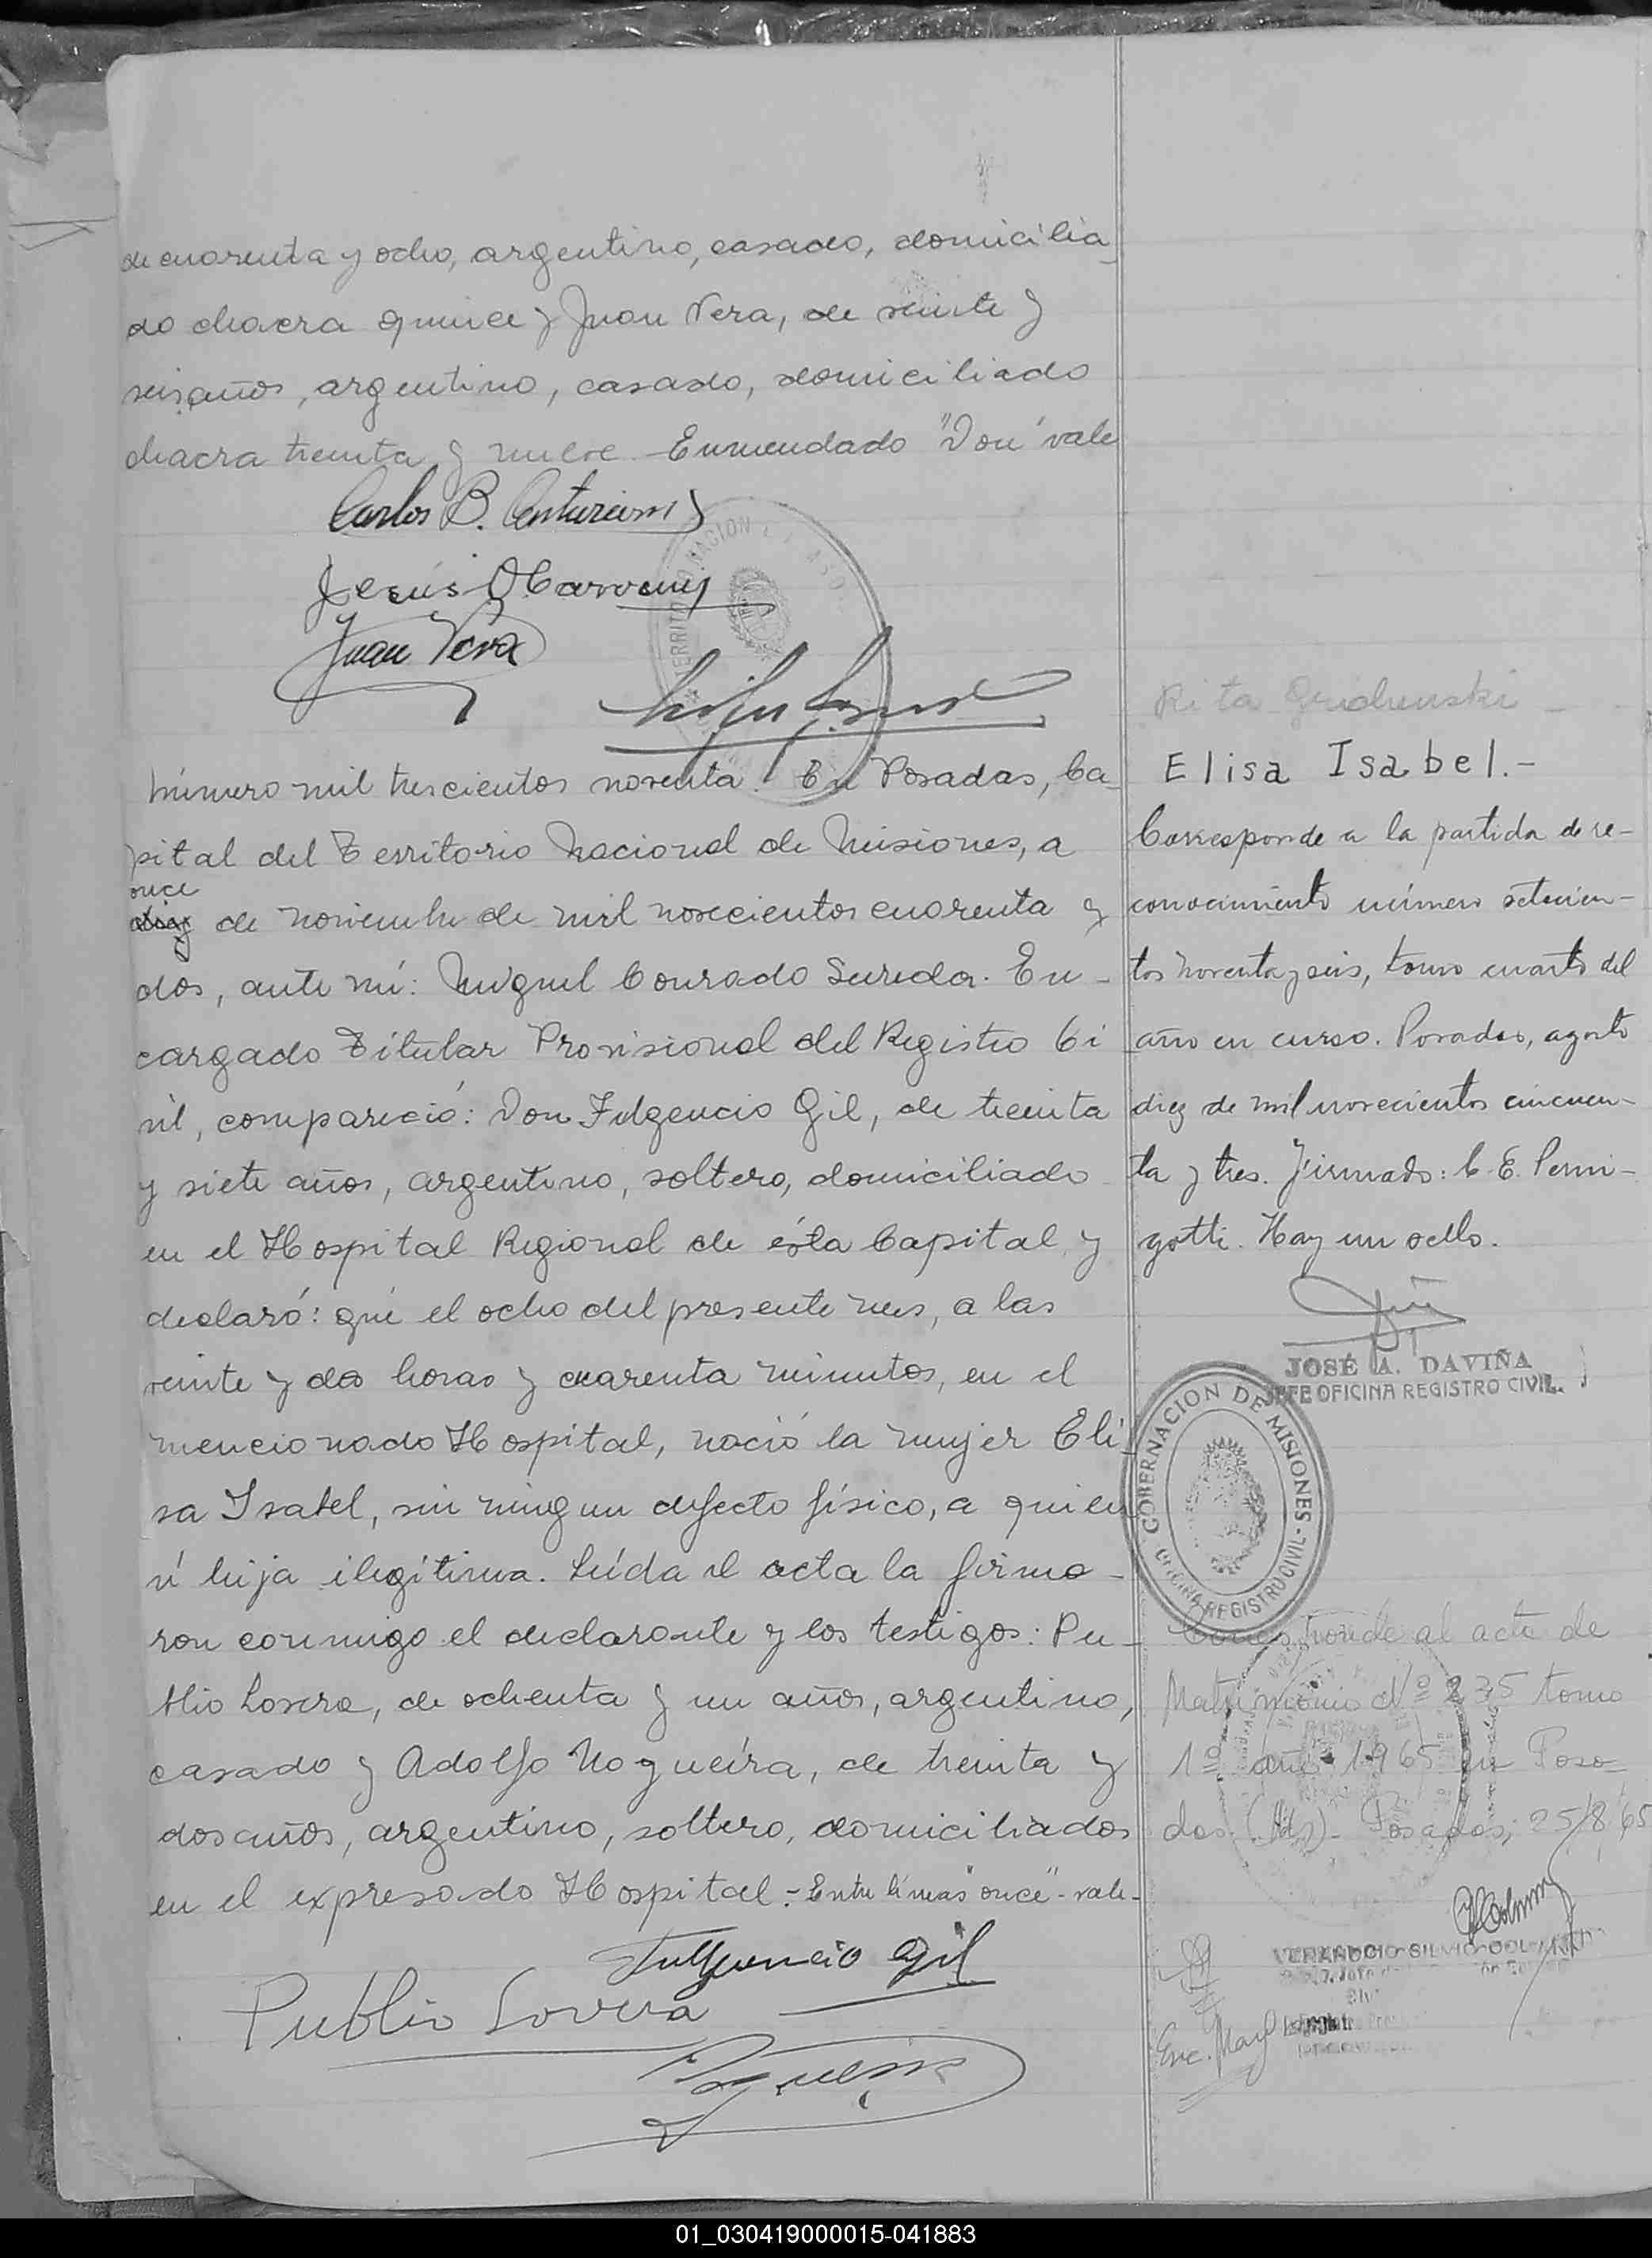 de cuarenta y ocho, argentino, casado, domicilia_
do chacra quince y Juan Vera, de veinte y
seis años, argentino, casado, domiciliado
chacra treinta y nueve. Enmendado "Don" vale
Carlos B. Centurion
Jesús
Juan Vera
Número mil trescientos noventa. En Posadas, Ca_
pital del Territorio Nacional de Misiones, a
once
diez de noviembre de mil novecientos cuarenta y
dos, ante mí: Miguel Conrado Sureda. En-
cargado Titular Provisional del Registro Ci
vil, compareció: Don Fulgencio Gil, de treinta
y siete años, argentino, soltero, domiciliado
en el Hospital Regional de ésta Capital y
declaró: qué el ocho del presente mes, a las
veinte y dos horas y cuarenta minutos, en el
mencionado Hospital, nació la mujer Eli_
sa Isabel, sin ningun defecto físico, a quien
ví hija ilegítima. Leída el acta la firma-
ron conmigo el declarante y los testigos: Pu-
blio Lovera, de ochenta y un años, argentino,
casado y Adolfo Nogueira, de treinta y
dos años, argentino, soltero, domiciliados
en el expresado Hospital.- Entre líneas "once" - vale-
Fulgencio Gil
Publio Lovera
Rita
Elisa Isabel.-
Corresponde a la partida de re-
conocimiento número setecien-
tos noventa y seis, tomo cuarto del
año en curso. Posadas, agosto
diez de mil novecientos cincuen-
ta y tres. Firmado: C. E. Perni-
gotti. Hay un sello.
JOSÉ A. DAVIÑA
JEFE OFICINA REGISTRO CIVIL.
GOBERNACION DE MISIONES - OFICINA REGISTRO CIVIL -
Corresponde al acta de
Matrimonio Nº 235 tomo
1º año 1965 en Posa_
das (Mis)- Posadas, 25/8/65
01_030419000015-041883